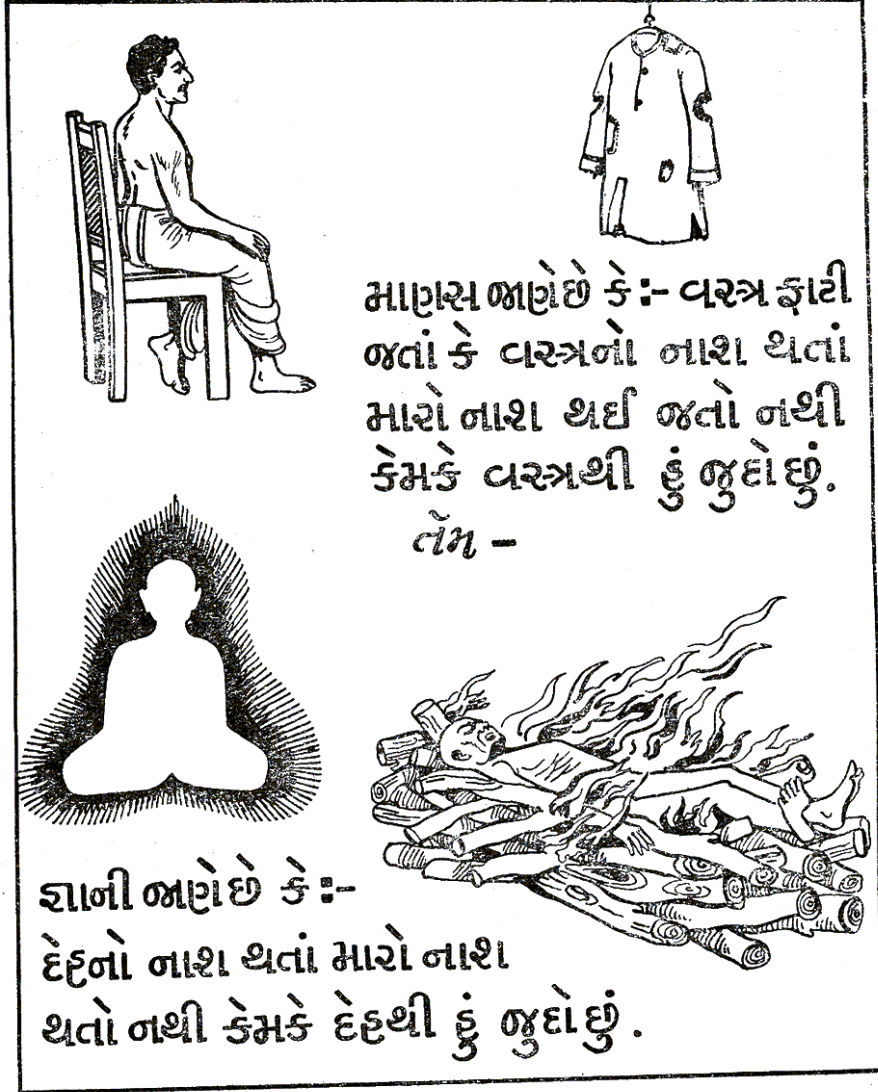 માણસ જાણેછે કે:- વસ્ત્ર ફાટી
જતાં કે વસ્ત્રનો નાશ થતાં
મારો નાશ થઈ જતો નથી
કેમકે વસ્ત્રથી હું જુદોછું.
તેમ -
જ્ઞાની જાણેછે કે:-
દેહનો નાશ થતાં મારો નાશ
થતો નથી કેમકે દેહથી હું જુદોછું.